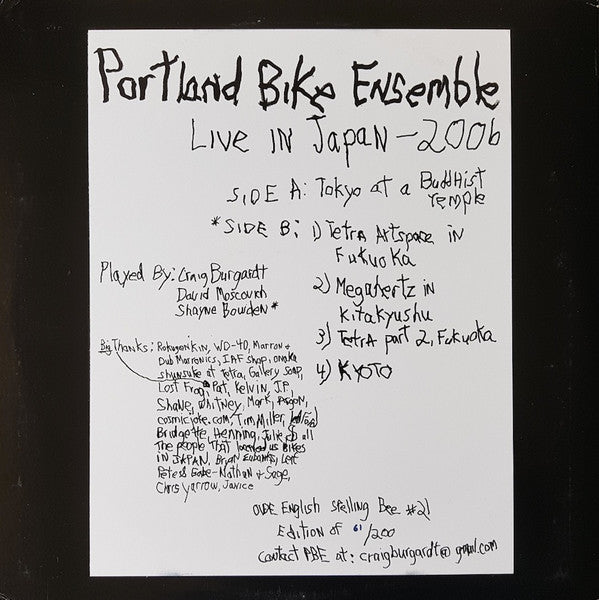 Portland Bike Ensemble
Live in Japan - 2006
SIDE A: Tokyo at a Buddhist
Temple
*SIDE B: 1) Tetra Artspace in
Fukuoka
2) Megahertz in
Kitakyushu
3) Tetra part 2, Fukuoka
4) KYOTO
Played By: Craig Burgardt
David Moscovich
Shayne Bowden *
Big Thanks: Rokugenkin, WD-40, Marron +
Dub Marronics, IAF shop, onaka
shunsuke at tetra, Gallery soap,
Lost Frog, Pat, Kelvin, J.P,
Shane, Whitney, Mark, 
cosmicjoke.com, Tim Miller,
Bridgette, Henning, Julie & all
The people That loaned us Bikes
IN JAPAN, Brian Eubanks, Leif
Peters Gabe-Nathan + Sage,
Chris Yarrow, Janice
OLDE English Spelling Bee #21
Edition of 61/200
Contact PBE at: craigburgardt@gmail.com